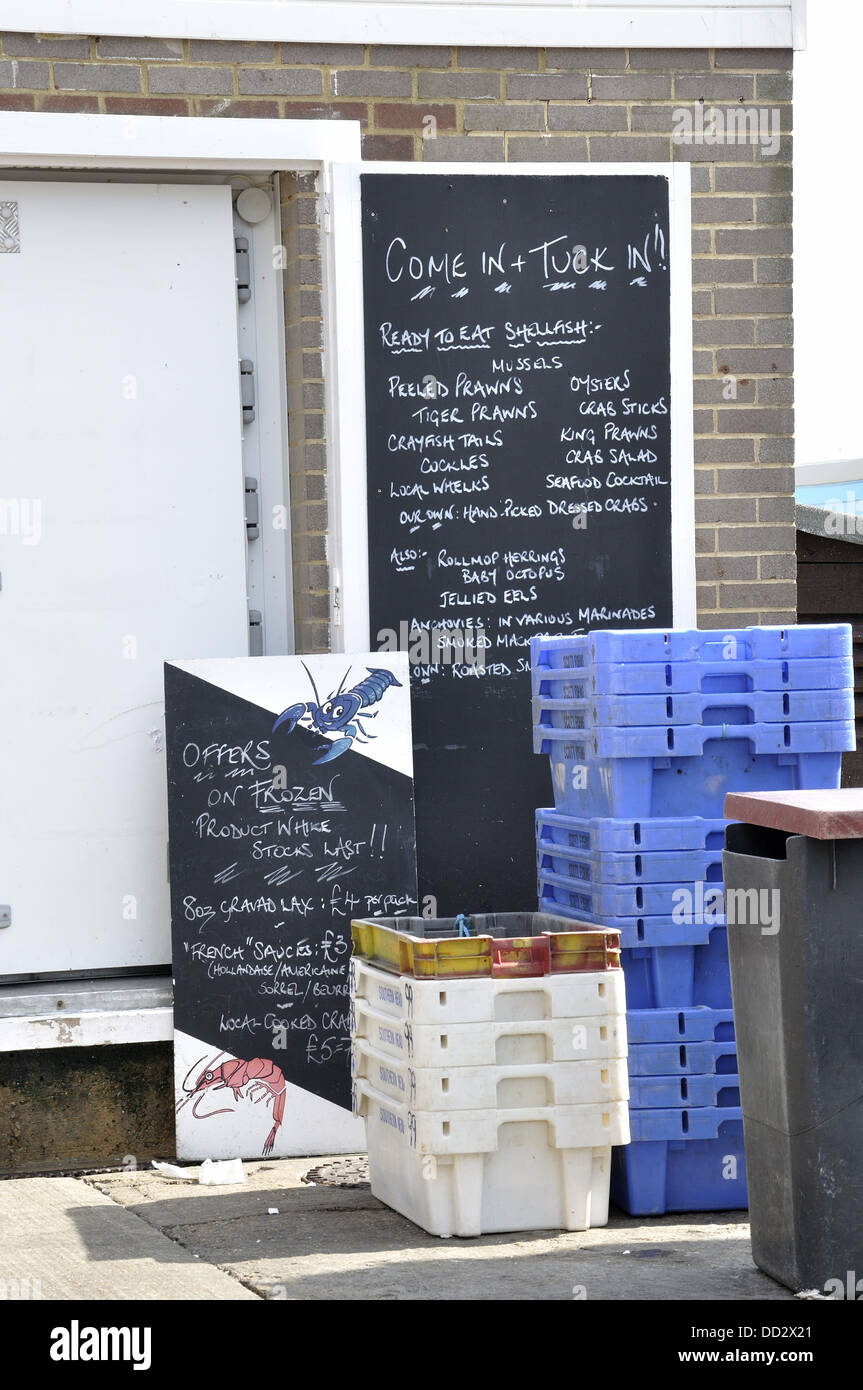 COME IN + TUCK IN!!
READY TO EAT SHELLFISH:-
MUSSELS
PEELED PRAWNS OYSTERS
TIGER PRAWNS CRAB STICKS
CRAYFISH TAILS KING PRAWNS
COCKLES CRAB SALAD
LOCAL WHELKS SEAFOOD COCKTAIL
OUR OWN: HAND PICKED DRESSED CRABS
ALSO:- ROLLMOP HERRINGS
BABY OCTOPUS
JELLIED EELS
ANCHOVIES: IN VARIOUS MARINADES
SMOKED
OWN: ROASTED
OFFERS
ON FROZEN
PRODUCT WHILE
STOCKS LAST!!
8oz GRAVADLAX: £4 per pack
"FRENCH" SAUCES: £3
(HOLLANDASE/AMERICAINE
SORREL/BEURR
LOCAL COOKED CRA
£5=7
SOUTHERN HEAD 99
SOUTHERN HEAD 99
SOUTHERN HEAD 99
SOUTHERN HEAD 99
alamy
a
a
a
a
a
alamy
Image ID: DD2X21
www.alamy.com